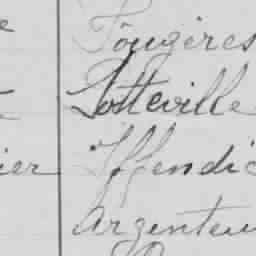 Fougères
Sotteville
ier Iffendic
Argenteu